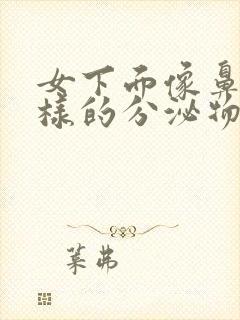 女下面像鼻
样的分泌物
莱弗